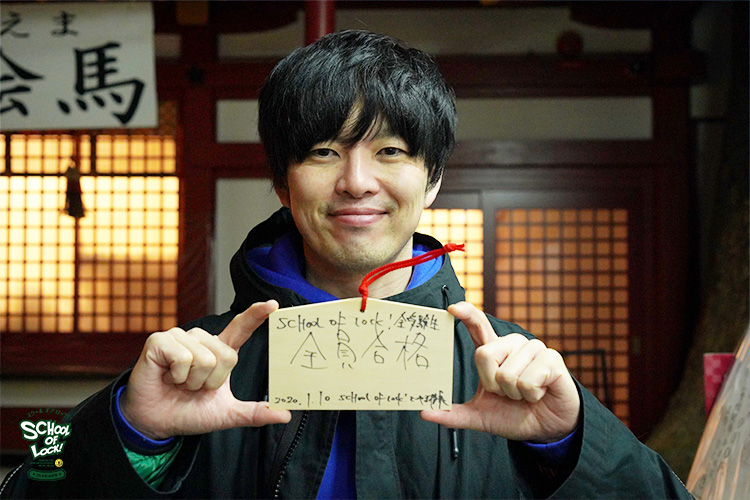 えま
絵馬
SCHOOL OF LOCK! 全受験生
全員合格
2020.1.10 SCHOOL OF LOCK!
SCHOOL
OF
LOCK!